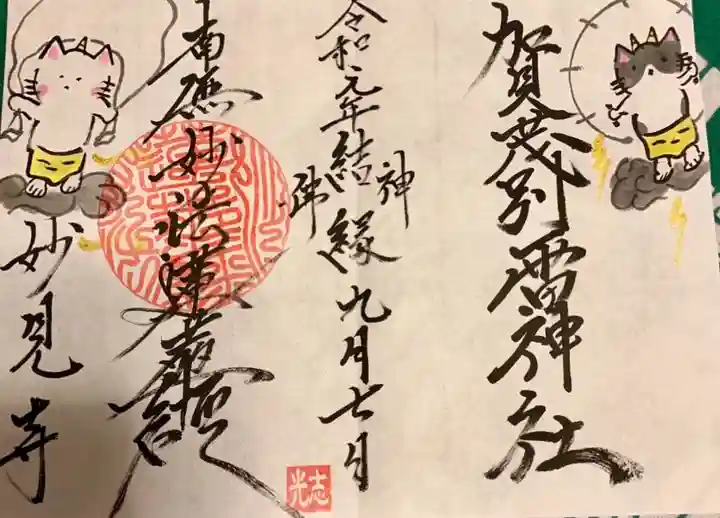 賀茂別雷神社
令和元年結縁九月七日
神
佛
南無妙法蓮華經
妙見寺
志光